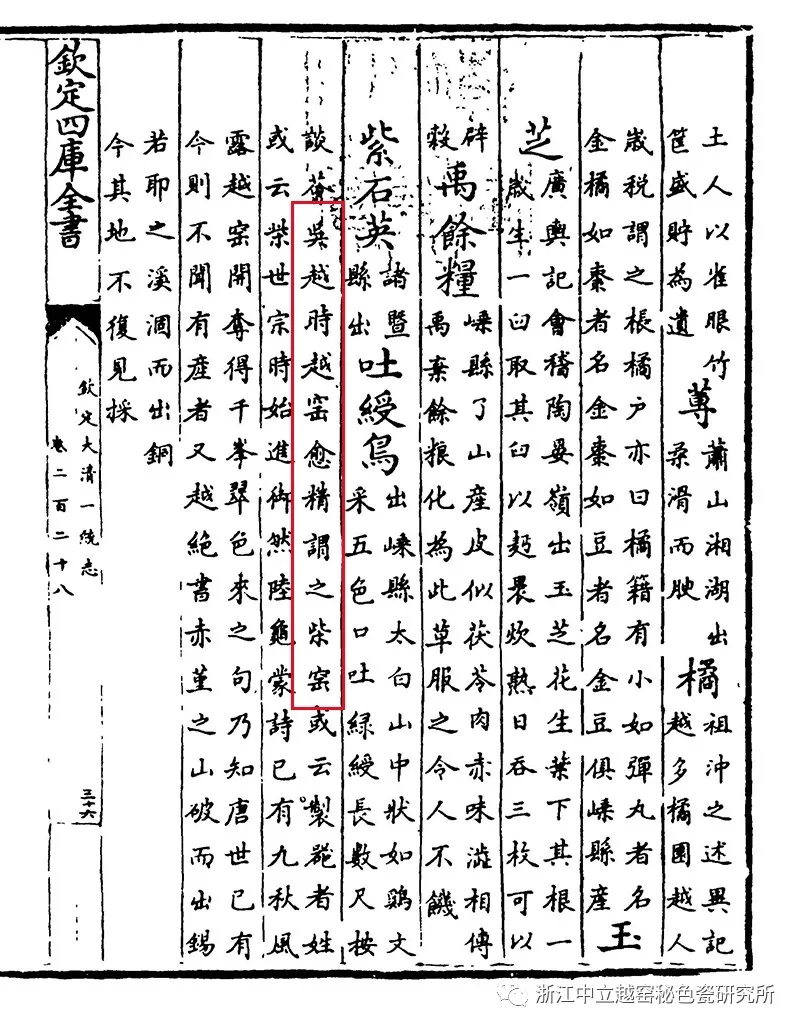 土人以雀眼竹
筐盛貯為遺
蓴
蕭山湘湖出
柔滑而腴
橘
祖沖之述異記
越多橘園越人
歲稅謂之棖橘户亦曰橘籍有小如彈丸者名
金橘如棗者名金棗如豆者名金豆俱嵊縣產
玉
芝
廣輿記會稽陶晏嶺出玉芝花生葉下其根一
歲生一臼取其臼以麪裹炊熟日吞三枚可以
辟
穀
禹餘糧
嵊縣了山產皮似茯苓肉赤味澁相傳
禹棄餘粮化為此草服之令人不饑
紫石英
諸暨
縣出
吐綬鳥
出嵊縣太白山中狀如鷄文
采五色口吐綠綬長數尺按
談薈吳越時越窑愈精謂之柴窑或云製器者姓
或云柴世宗時始進御然陸龜蒙詩已有九秋風
露越窑開奪得千峯翠色來之句乃知唐世已有
今則不聞有產者又越絶書赤堇之山破而出錫
若耶之溪涸而出銅
今其地不復見採
欽定四庫全書
欽定大清一統志
卷二百二十八
三十六
浙江中立越窑秘色瓷研究所